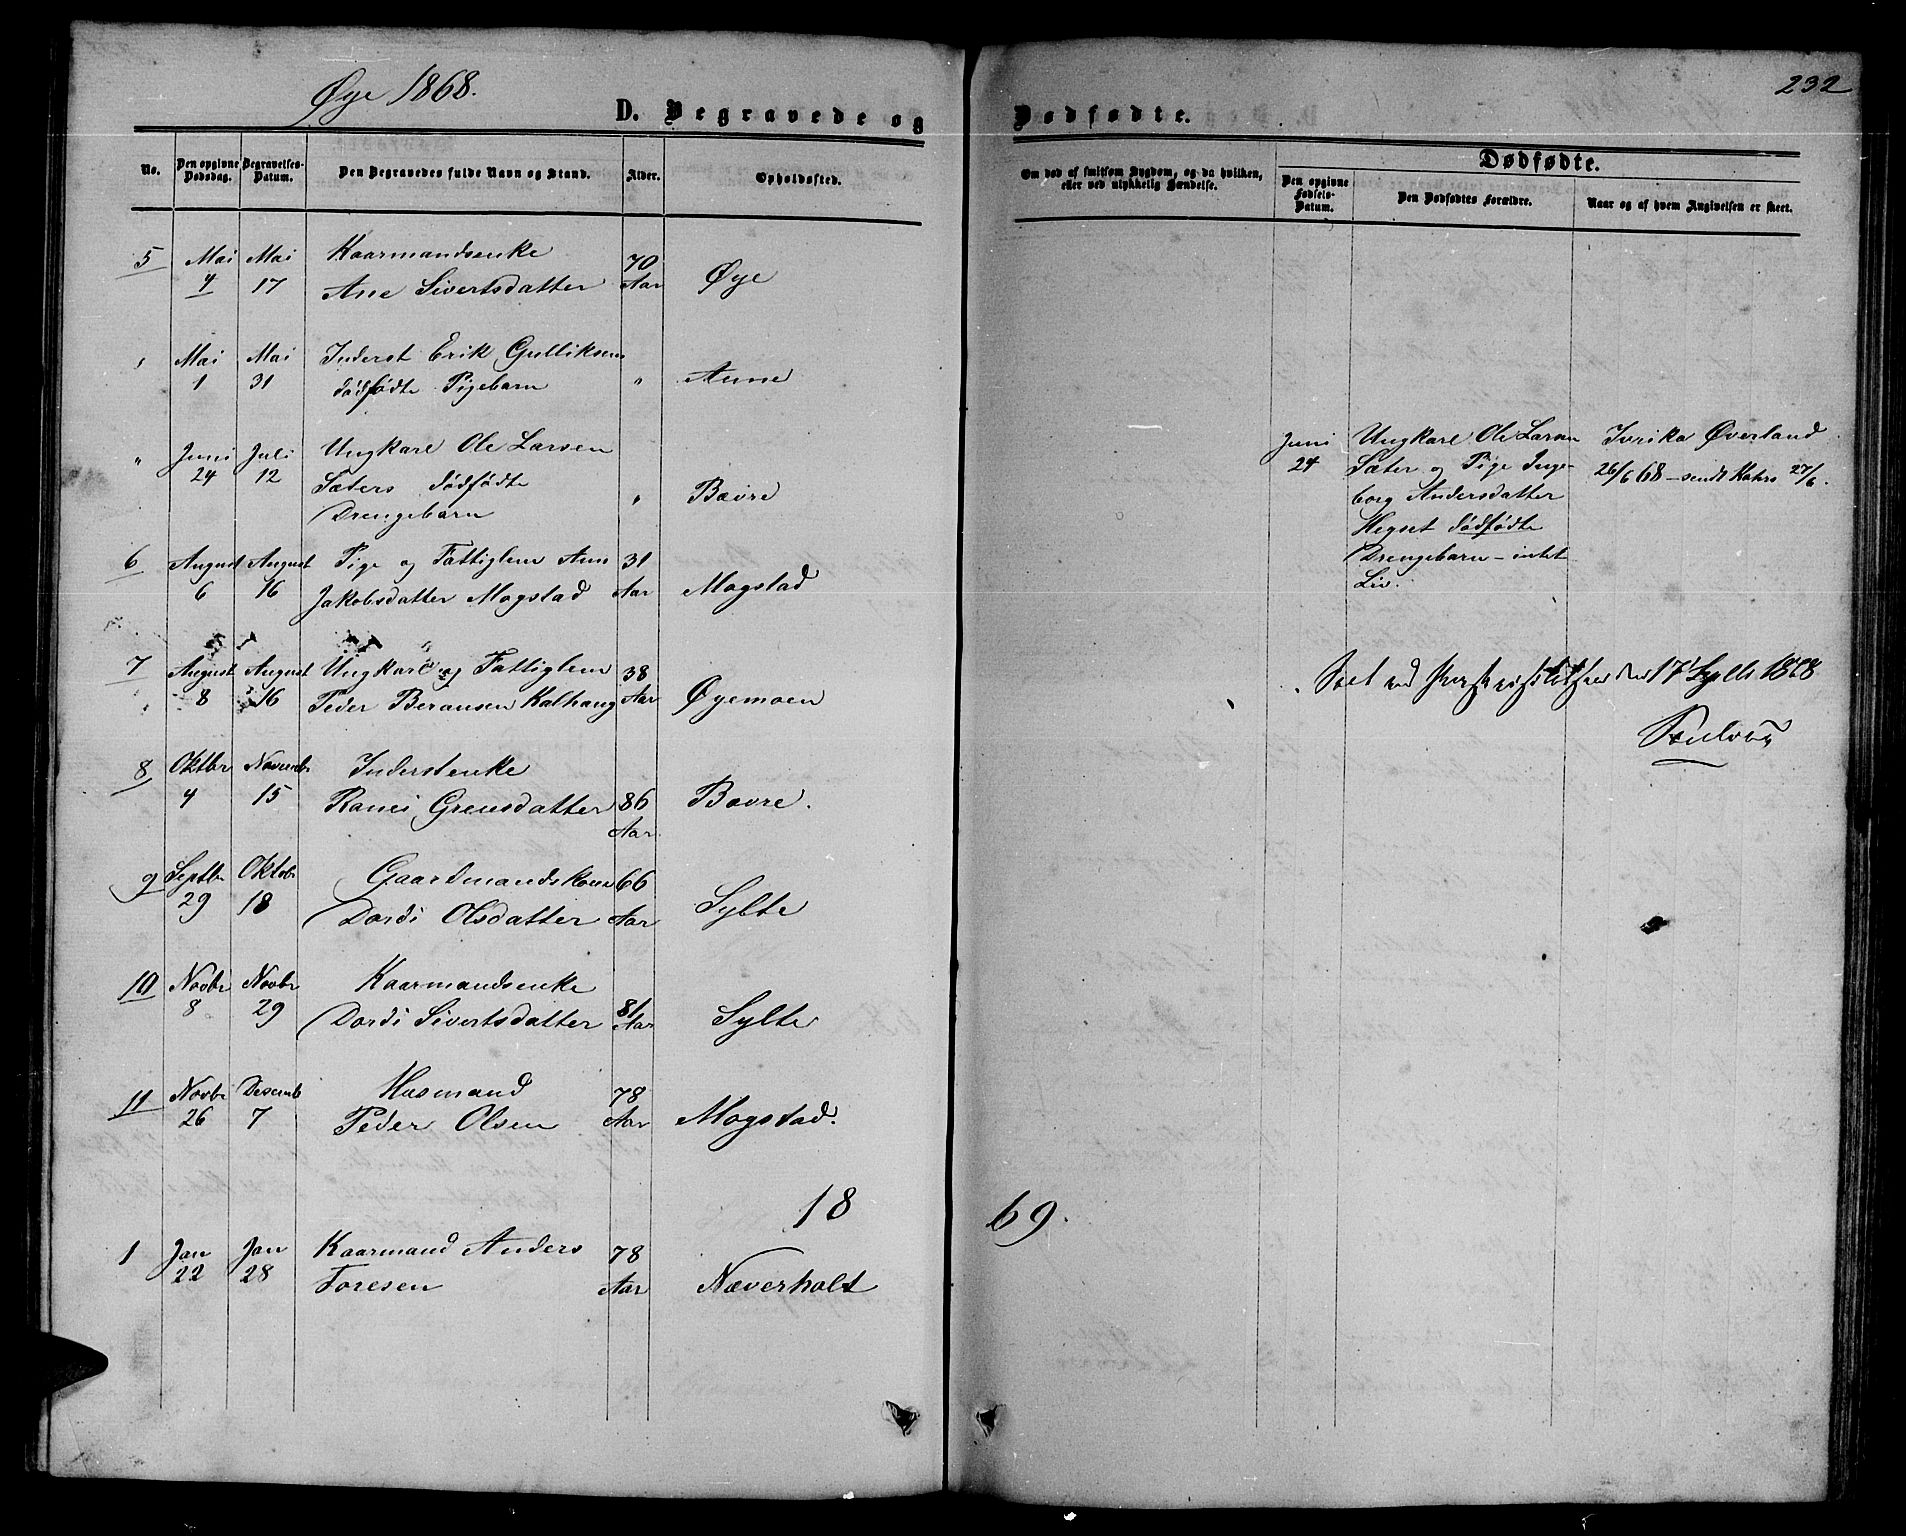 Øye 1868.
232
D. Begravede og Dødfødte.
No.
Den opgivne Dødsdag.
Begravelses-Datum.
Den Begravedes fulde Navn og Stand.
Alder.
Opholdssted.
Om død af smitsom Sygdom, og da hvilken, eller ved ulykkelig Hændelse.
Dødfødte.
Den opgivne Fødsels-Datum.
Den Dødfødtes Forældre.
Naar og af hvem Angivelsen er skeet.
5 Mai Mai Kaarmandsenke 70
4 17 Ane Sivertsdatter Aar Øye
Mai Mai Inderst Erik Gulliksens
1 31 dødfødte Pigebarn " Aune
" Juni Juli Ungkarl Ole Larsen
24 12 Sæters dødfødte
Drengebarn " Bævre
Juni Ungkarl Ole Larsen
24 Sæter og Pige Inge-
borg Andersdatter
Hegset dødfødte
Drengebarn – intet
Liv.
Øverland
26/6 68 – sendt 27/6.
6 August August Pige og Fattiglem Ane 31
6 16 Jakobsdatter Mogstad Aar Mogstad
7 August August Ungkarl og Fattiglem 38
8 16 Peder Kalhaug Aar Øyemoen
17 1868
8 Oktbr Novembr Inderstenke
4 15 86 Bævre.
Aar
9 Septbr Oktobr Gaardmandskone 66
29 18 Dordi Olsdatter Aar Sylte
10 Novbr Novbr Kaarmandsenke
8 29 Dordi Sivertsdatter 81 Aar Sylte
11 Novbr Desemb Husmand 78
26 7 Peder Olsen Aar Mogstad.
18 69.
1 Jan Jan Kaarmand Anders 78
22 28 Toresen Aar Næverholt